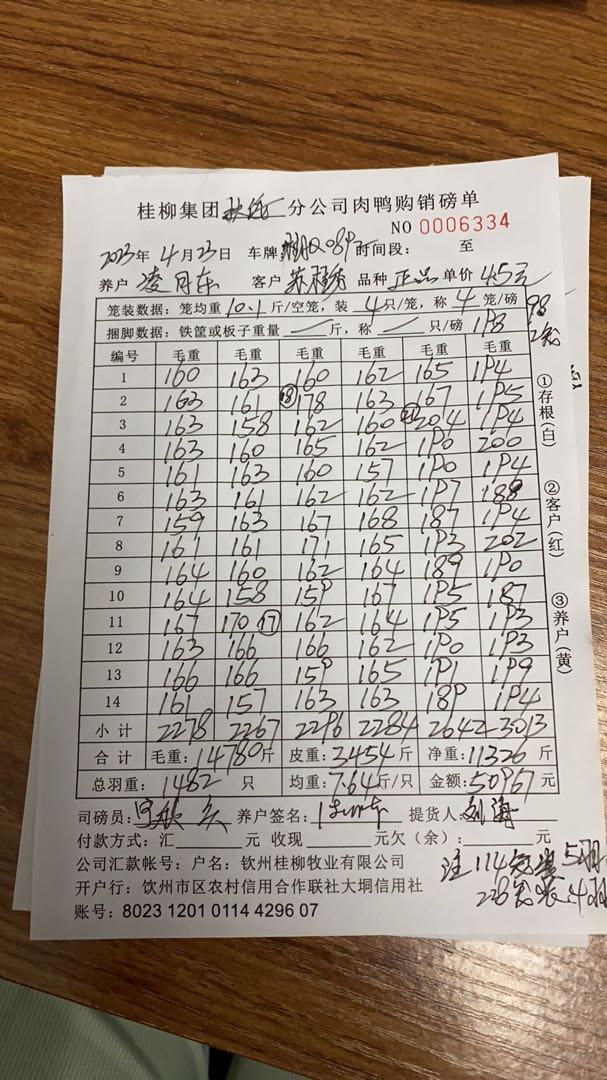 桂柳集团扶绥分公司肉鸭购销磅单
NO 0006334
2023年 4月23日 车牌 时间段: 至
养户 凌月东 客户 品种 正品 单价 4.5元
笼装数据: 笼均重10.1斤/空笼, 装 4只/笼, 称 4 笼/磅
捆脚数据: 铁筐或板子重量 斤, 称 只/磅 198
编号 毛重 毛重 毛重 毛重 毛重 毛重
1 160 163 160 162 165 194
2 163 161 18 178 163 167 195
3 163 158 162 160 21 204 194
4 163 160 165 162 190 200
5 161 163 160 157 190 194
6 163 161 162 162 197 188
7 159 163 167 168 187 194
8 161 161 171 165 193 202
9 164 160 162 164 189 190
10 164 158 159 167 195 187
11 167 170 17 162 164 195 193
12 163 166 166 162 190 193
13 166 166 159 165 191 199
14 161 157 163 163 189 194
小计 2278 2267 2296 2284 2642 3013
合计 毛重: 14780斤 皮重: 3454斤 净重: 11326斤
总羽重: 1482 只 均重: 7.64斤/只 金额: 50967元
司磅员: 养户签名: 提货人: 刘海
付款方式: 汇 元 收现 元欠(余): 元
公司汇款帐号: 户名: 钦州桂柳牧业有限公司
开户行: 钦州市区农村信用合作联社大垌信用社
账号: 8023 1201 0114 4296 07
注 114笼装5羽
228笼装4羽
①存根(白)
②客户(红)
③养户(黄)